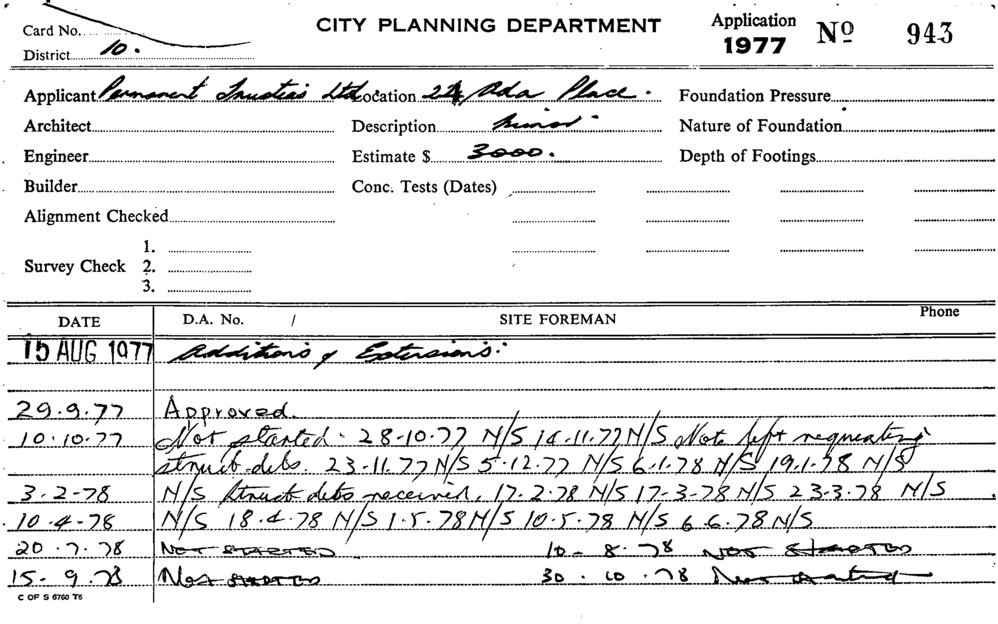 CITY PLANNING DEPARTMENT
Application
1977 Nº 943
Card No.
District 10.
Applicant Permanent Trustees Ltd Location 24 Ada Place. Foundation Pressure
Architect Description Minor Nature of Foundation
Engineer Estimate $ 3000. Depth of Footings
Builder Conc. Tests (Dates)
Alignment Checked
1.
Survey Check 2.
3.
DATE D.A. No. / SITE FOREMAN Phone
15 AUG 1977 Additions & Extensions.
29.9.77 Approved.
10.10.77 Not started. 28-10-77 N/S 14.11.77 N/S Note left requesting
struct. dets. 23-11.77 N/S 5.12.77 N/S 6.1.78 N/S 19.1.78 N/S
3-2-78 N/S Struct dets received. 17-2.78 N/S 17-3-78 N/S 23-3.78 N/S
10-4-78 N/S 18.4.78 N/S 1.5.78 N/S 10.5.78 N/S 6.6.78 N/S
20.7.78 NOT STARTED 10-8.78 NOT STARTED
15-9.78 NOT STARTED 30.10.78 Not started
C OF S 6760 T6